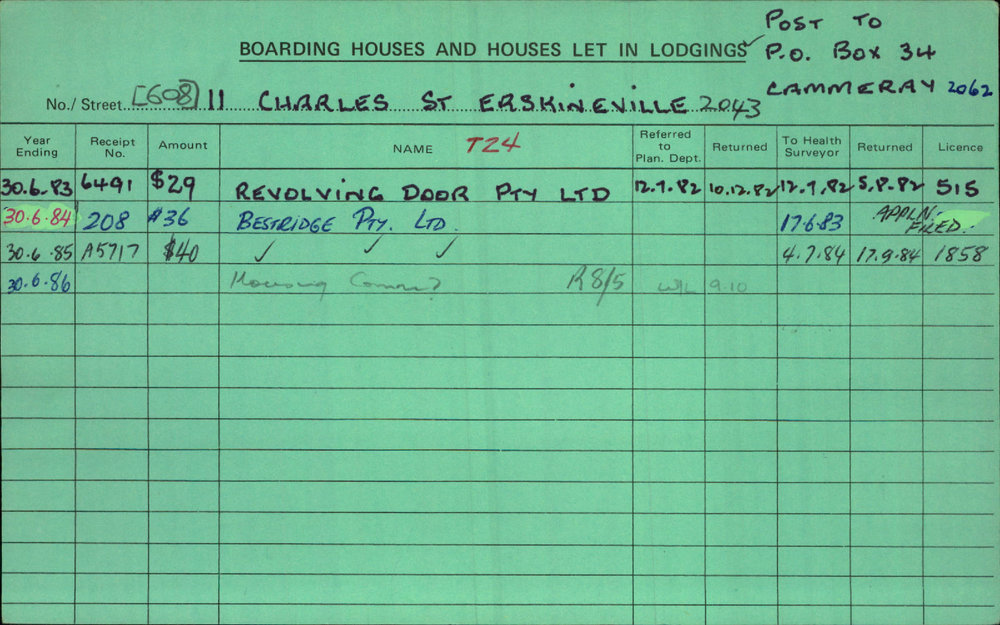 POST TO
BOARDING HOUSES AND HOUSES LET IN LODGINGS ✓ P.O. BOX 34
CAMMERAY 2062
No./ Street [608] 11 CHARLES ST ERSKINEVILLE 2043
Year Ending Receipt No. Amount NAME T24 Referred to Plan. Dept. Returned To Health Surveyor Returned Licence
30.6.83 6491 $29 REVOLVING DOOR PTY LTD 12.7.82 10.12.82 12.7.82 5.8.82 515
30.6.84 208 $36 BESTRIDGE PTY. LTD. 17.6.83 APPLN. FILED.
30.6.85 A5717 $40 ✓ ✓ ✓ 4.7.84 17.9.84 1858
30.6.86 Housing R8/5 9.10